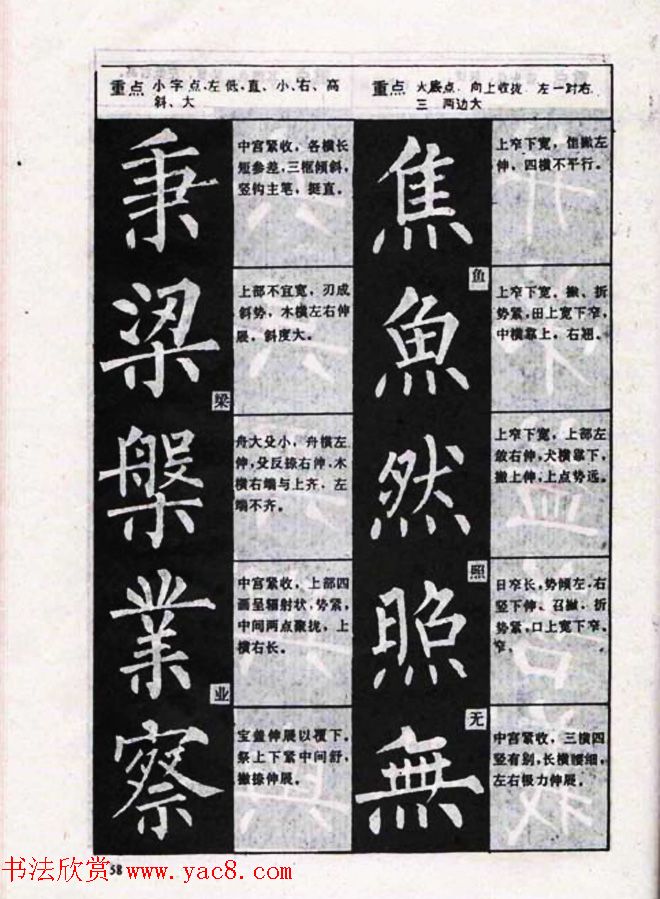 重点 小字点、左低、直、小、右、高
斜、大
秉
中宫紧收，各横长
短参差，三框倾斜，
竖钩主笔，挺直。
梁
梁
上部不宜宽，刃成
斜势，木横左右伸
展，斜度大。
槃
舟大殳小，舟横左
伸，殳反捺右伸，木
横右端与上齐，左
端不齐。
業
业
中宫紧收，上部四
画呈辐射状，势紧，
中间两点聚拢，上
横右长。
察
宝盖伸展以覆下。
祭上下紧中间舒，
撇捺伸展。
重点 火底点 向上收拢 左一对右
三 两边大
焦
上窄下宽，撇左
伸，四横不平行。
魚
鱼
上窄下宽，撇、折
势紧，田上宽下窄，
中横靠上，右翘。
然
上窄下宽，上部左
敛右伸，犬横靠下，
撇上伸，上点势远。
照
照
日窄长，势倾左，右
竖下伸、召撇、折
势紧，口上宽下窄。
窄。
無
无
中宫紧收，三横四
竖有别，长横腰细，
左右极力伸展。
58
书法欣赏 www.yac8.com